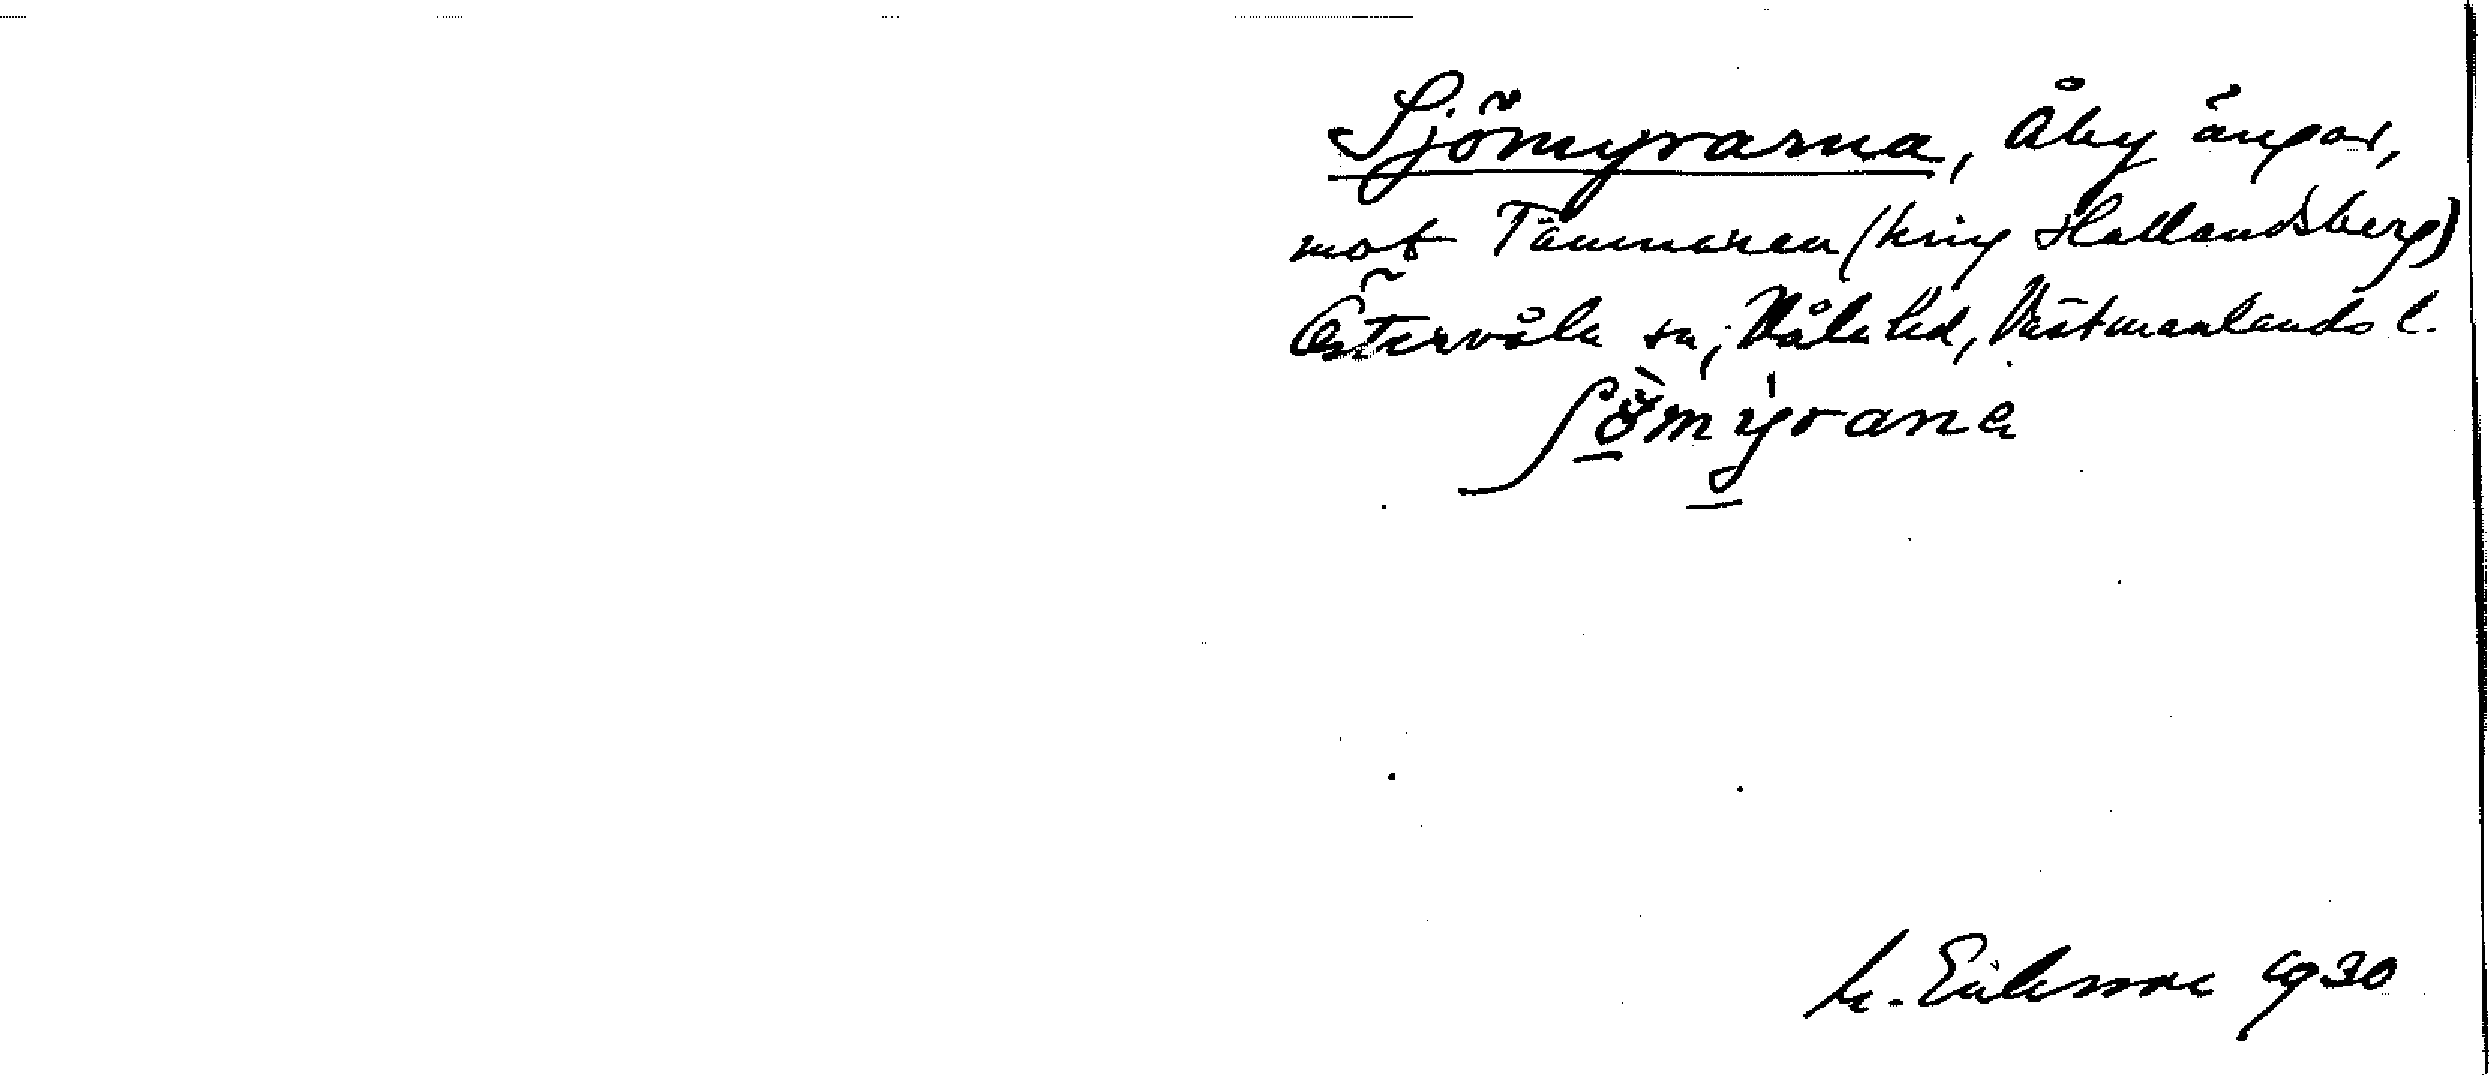 Sjömyrarna, Åby ängar,
mot Tämnaren (kring Hallandsberg)
Östervåla sn, Våla hd, Västmanlands l.
ʃö̀mýrana
M. Eriksson 1930